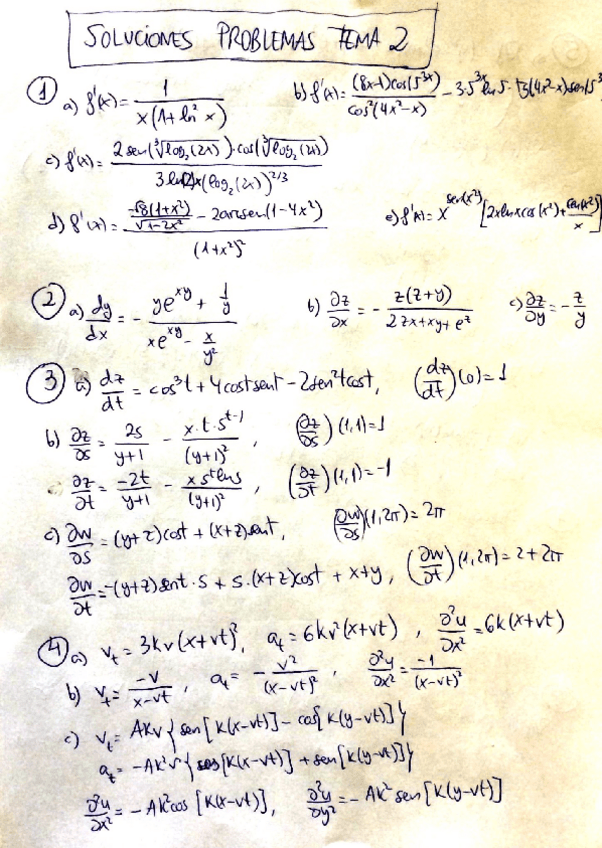 SOLUCIONES PROBLEMAS TEMA 2
① a) f'(x) = 1 / (x(1+ln² x)) b) f'(x) = (8x-1)cos(5^{3x}) / cos²(4x²-x) - 3·5^{3x} ln 5 · t3(4x²-x)sen(5^{3
c) f'(x) = 2 sen(∛(log₂(2x)))·cos(∛(log₂(2x))) / (3 ln(2)x(log₂(2x))^{2/3})
d) f'(x) = (-√8(1+x²)/√(1-2x²) - 2arcsen(1-4x²)) / (1+x²)² e) f'(x) = x^{sen(x²)} [2xlnxcos(x²) + sen(x²)/x]
② a) dy/dx = - (ye^{xy} + 1/y) / (xe^{xy} - x/y²) b) ∂z/∂x = - z(z+y) / (2zx+xy+e^z) c) ∂z/∂y = - z/y
③ a) dz/dt = cos³t + 4costsent - 2sen²tcost, (dz/dt)(0) = 1
b) ∂z/∂s = 2s/(y+1) - x·t·s^{t-1}/(y+1)², (∂z/∂s)(1,1) = 1
∂z/∂t = -2t/(y+1) - xs^t lns/(y+1)², (∂z/∂t)(1,1) = -1
c) ∂w/∂s = (y+z)cost + (x+z)sent, (∂w/∂s)(1,2π) = 2π
∂w/∂t = -(y+z)sent·s + s·(x+z)cost + x+y, (∂w/∂t)(1,2π) = 2+2π
④ a) v_t = 3kv(x+vt)², a_t = 6kv²(x+vt), ∂²u/∂x² = 6k(x+vt)
b) v_t = -v/(x-vt), a_t = - v²/(x-vt)², ∂²u/∂x² = -1/(x-vt)²
c) v_t = AKv{sen[K(x-vt)] - cos[K(y-vt)]}
a_t = -AK²v²{cos[K(x-vt)] + sen[K(y-vt)]}
∂²u/∂x² = -AK²cos[K(x-vt)], ∂²u/∂y² = -AK² sen[K(y-vt)]